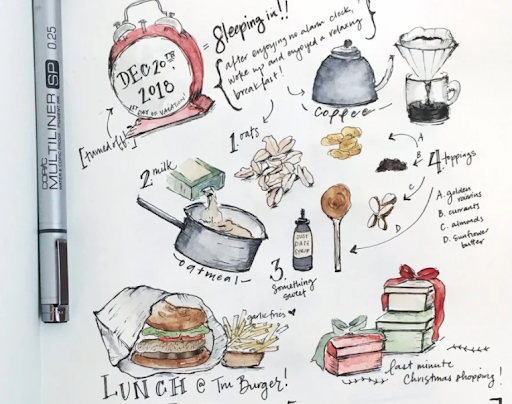 DEC 20TH
2018
1ST DAY OF VACATION!
[turned off!]
= Sleeping in!!
{after enjoying no alarm clock,
woke up and enjoyed a relaxing
breakfast!}
coffee
1. oats
2. milk
oatmeal
3. something
sweet
DATE
SYRUP
4. toppings
A
B
C
D
A. golden
raisins
B. currants
C. almonds
D. sunflower
butter
garlic fries ♥
LUNCH @ Tru Burger!
last minute
Christmas shopping!
COPIC
MULTILINER SP 0.25